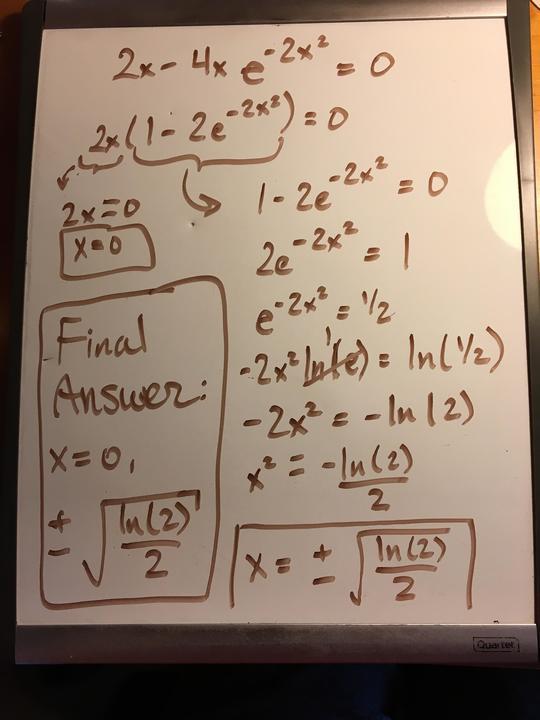 2x - 4x e^{-2x^2} = 0
2x(1 - 2e^{-2x^2}) = 0
2x = 0
x = 0
1 - 2e^{-2x^2} = 0
2e^{-2x^2} = 1
e^{-2x^2} = 1/2
-2x^2 ln(e) 1 = ln(1/2)
-2x^2 = -ln(2)
x^2 = -ln(2)/2
x = ± √(ln(2)/2)
Final
Answer:
x = 0,
± √(ln(2)/2)
Quartet